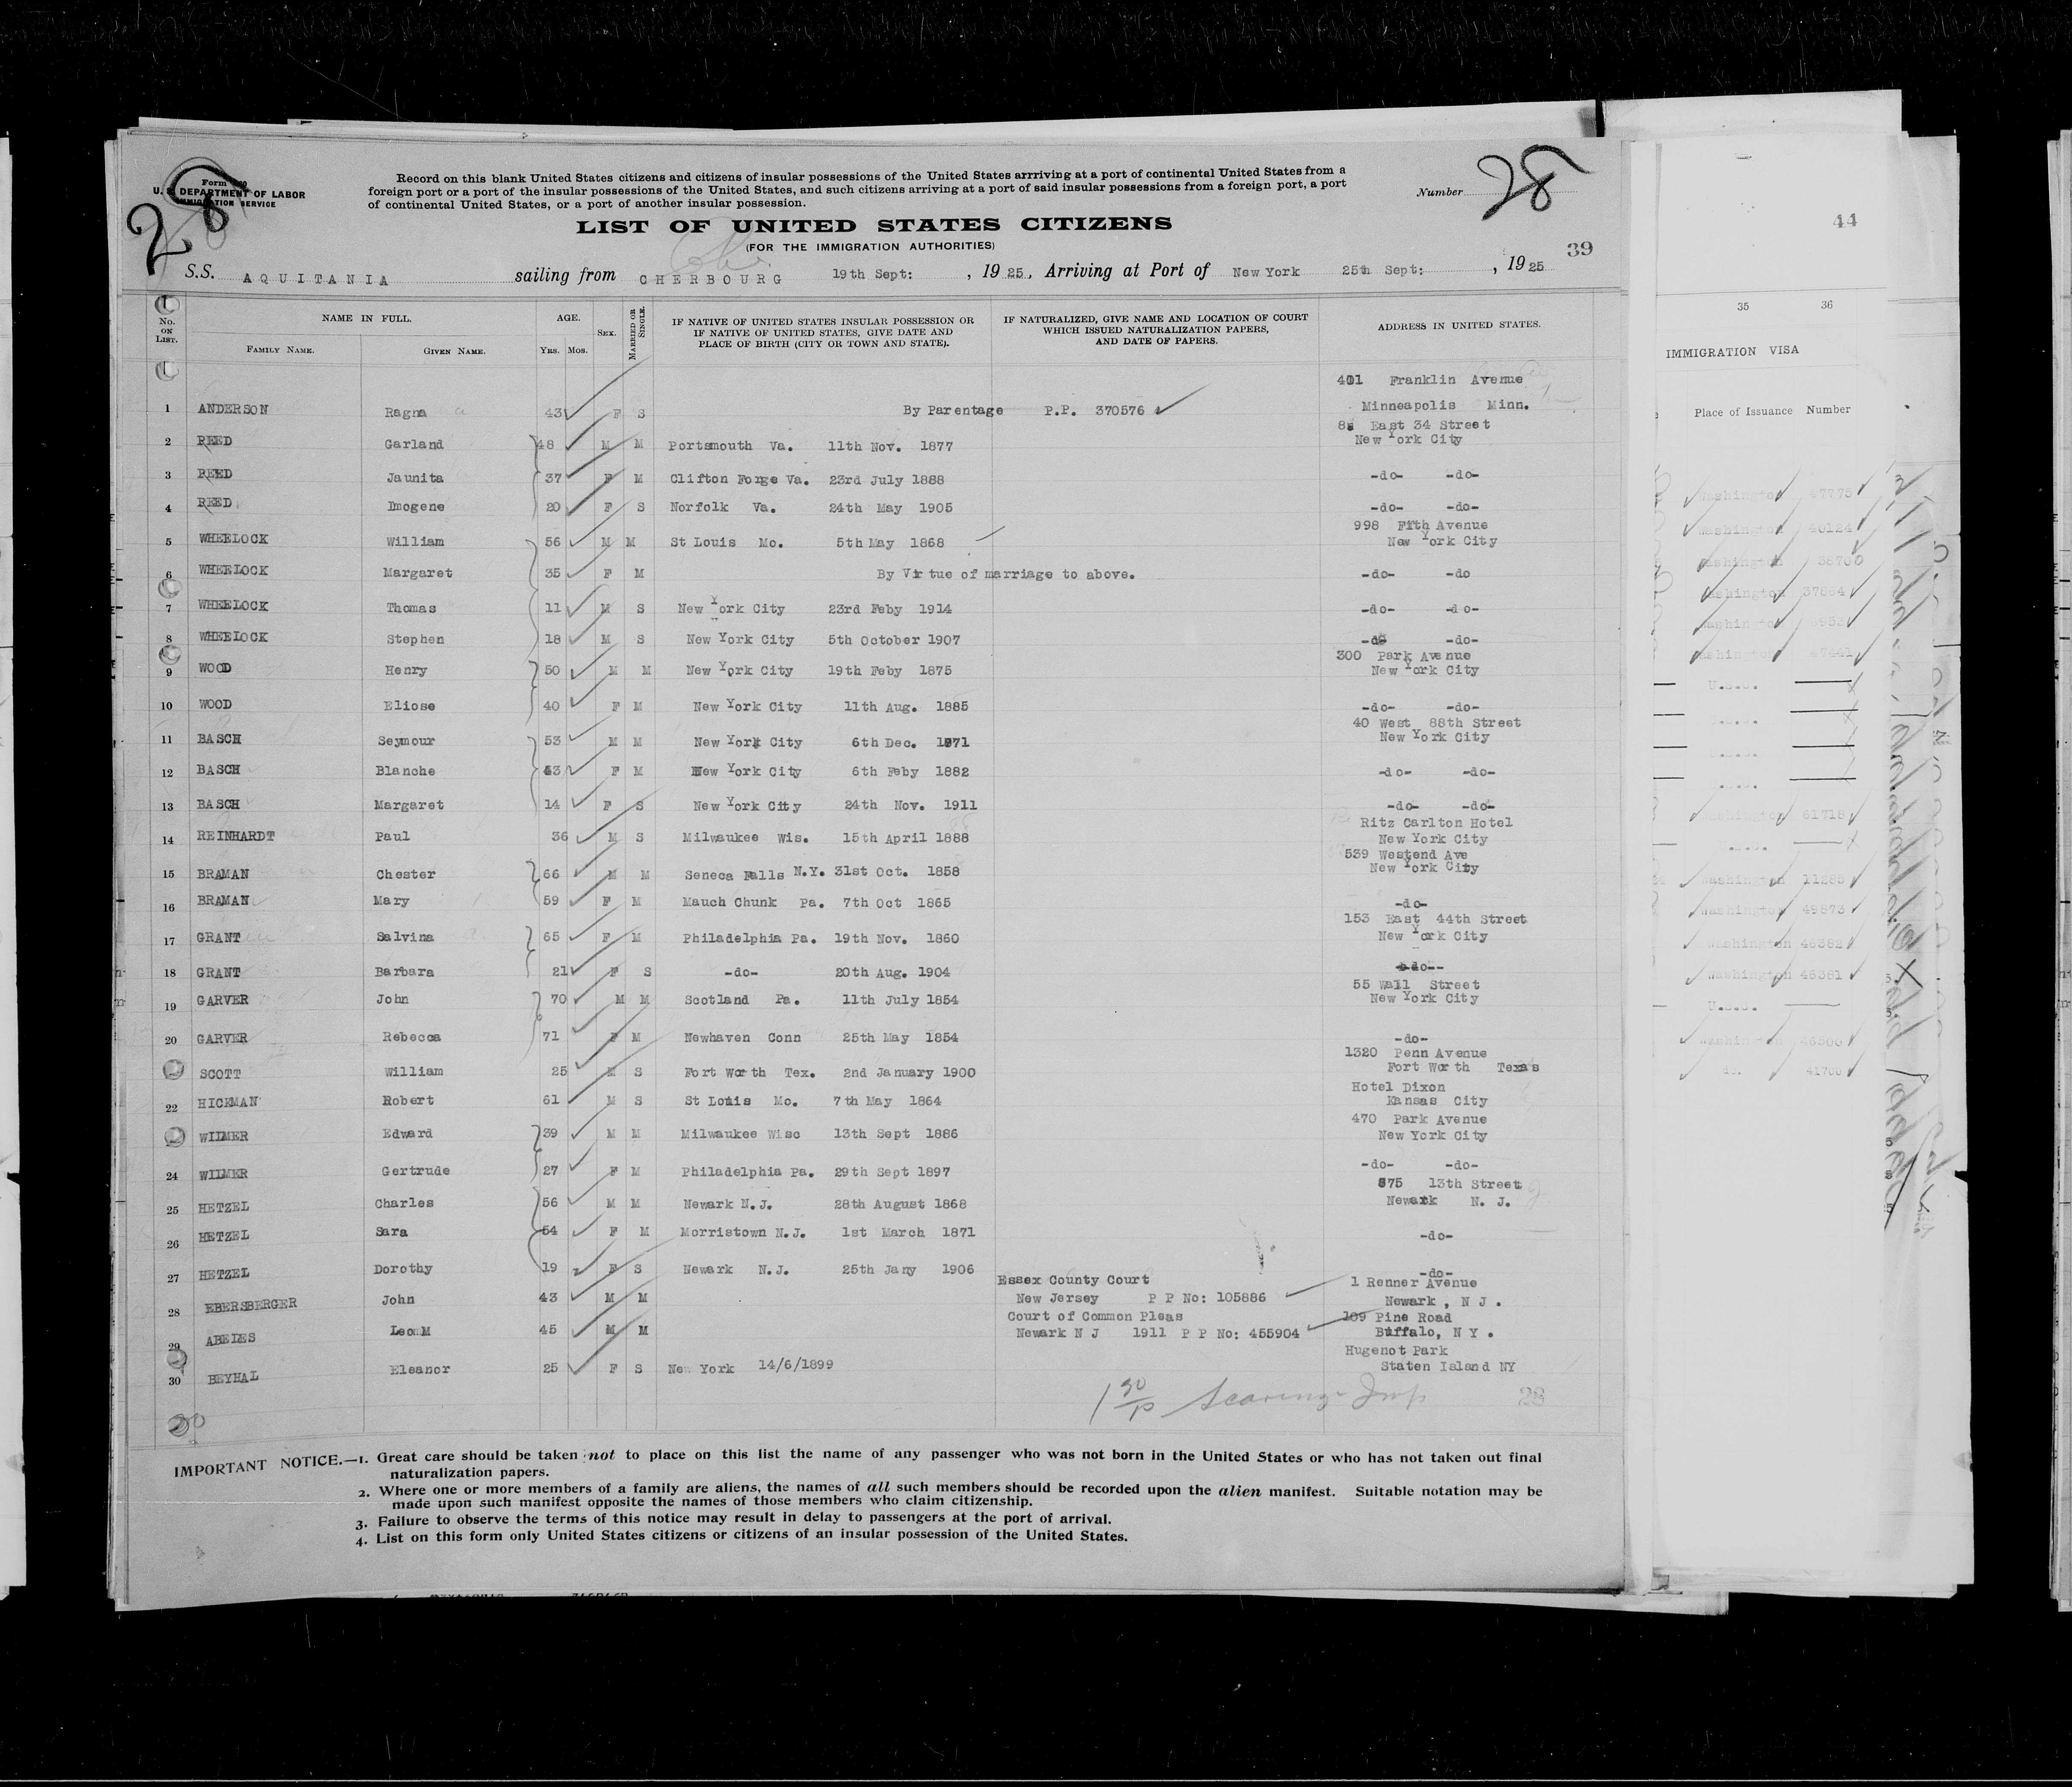 Form
U. S. DEPARTMENT OF LABOR
IMMIGRATION SERVICE
28
Record on this blank United States citizens and citizens of insular possessions of the United States arrriving at a port of continental United States from a
foreign port or a port of the insular possessions of the United States, and such citizens arriving at a port of said insular possessions from a foreign port, a port
of continental United States, or a port of another insular possession.
Number 28
LIST OF UNITED STATES CITIZENS
(FOR THE IMMIGRATION AUTHORITIES)
39
S.S. AQUITANIA sailing from CHERBOURG 19th Sept: , 1925, Arriving at Port of New York 25th Sept: , 1925
No. ON LIST. NAME IN FULL. FAMILY NAME. GIVEN NAME. AGE. YRS. MOS. SEX. MARRIED OR SINGLE. IF NATIVE OF UNITED STATES INSULAR POSSESSION OR IF NATIVE OF UNITED STATES, GIVE DATE AND PLACE OF BIRTH (CITY OR TOWN AND STATE). IF NATURALIZED, GIVE NAME AND LOCATION OF COURT WHICH ISSUED NATURALIZATION PAPERS, AND DATE OF PAPERS. ADDRESS IN UNITED STATES.
401 Franklin Avenue
1 ANDERSON Ragna 43 F S By Parentage P.P. 370576 Minneapolis Minn.
East 34 Street
2 REED Garland 48 M M Portsmouth Va. 11th Nov. 1877 New York City
3 REED Jaunita 37 F M Clifton Forge Va. 23rd July 1888 -do- -do-
4 REED Imogene 20 F S Norfolk Va. 24th May 1905 -do- -do-
998 Fith Avenue
5 WHEELOCK William 56 M M St Louis Mo. 5th May 1868 New York City
6 WHEELOCK Margaret 35 F M By Virtue of marriage to above. -do- -do
7 WHEELOCK Thomas 11 M S New York City 23rd Feby 1914 -do- -do-
8 WHEELOCK Stephen 18 M S New York City 5th October 1907 -do- -do-
300 Park Avenue
9 WOOD Henry 50 M M New York City 19th Feby 1875 New York City
10 WOOD Eliose 40 F M New York City 11th Aug. 1885 -do- -do-
40 West 88th Street
11 BASCH Seymour 53 M M New York City 6th Dec. 1871 New York City
12 BASCH Blanche 43 F M New York City 6th Feby 1882 -do- -do-
13 BASCH Margaret 14 F S New York City 24th Nov. 1911 -do- -do-
Ritz Carlton Hotel
14 REINHARDT Paul 36 M S Milwaukee Wis. 15th April 1888 New York City
539 Westend Ave
15 BRAMAN Chester 66 M M Seneca Falls N.Y. 31st Oct. 1858 New York City
16 BRAMAN Mary 59 F M Mauch Chunk Pa. 7th Oct 1865 -do-
153 East 44th Street
17 GRANT Salvina 65 F M Philadelphia Pa. 19th Nov. 1860 New York City
18 GRANT Barbara 21 F S -do- 20th Aug. 1904 -do--
55 Wall Street
19 GARVER John 70 M M Scotland Pa. 11th July 1854 New York City
20 GARVER Rebecca 71 F M Newhaven Conn 25th May 1854 -do-
1320 Penn Avenue
SCOTT William 25 M S Fort Worth Tex. 2nd January 1900 Fort Worth Texas
Hotel Dixon
22 HICKMAN Robert 61 M S St Louis Mo. 7th May 1864 Kansas City
470 Park Avenue
WILMER Edward 39 M M Milwaukee Wisc 13th Sept 1886 New York City
24 WILMER Gertrude 27 F M Philadelphia Pa. 29th Sept 1897 -do- -do-
875 13th Street
25 HETZEL Charles 56 M M Newark N.J. 28th August 1868 Newark N. J.
26 HETZEL Sara 54 F M Morristown N.J. 1st March 1871 -do-
27 HETZEL Dorothy 19 F S Newark N.J. 25th Jany 1906 -do-
Essex County Court 1 Renner Avenue
28 EBERSBERGER John 43 M M New Jersey P P No: 105886 Newark, N J.
Court of Common Pleas 109 Pine Road
29 ABELES Leon M 45 M M Newark N J 1911 P P No: 455904 Buffalo, N Y.
Hugenot Park
30 BEYHAL Eleanor 25 F S New York 14/6/1899 Staten Island NY
28
IMPORTANT NOTICE.—1. Great care should be taken not to place on this list the name of any passenger who was not born in the United States or who has not taken out final
naturalization papers.
2. Where one or more members of a family are aliens, the names of all such members should be recorded upon the alien manifest. Suitable notation may be
made upon such manifest opposite the names of those members who claim citizenship.
3. Failure to observe the terms of this notice may result in delay to passengers at the port of arrival.
4. List on this form only United States citizens or citizens of an insular possession of the United States.
44
35 36
IMMIGRATION VISA
Place of Issuance Number
Washington 47775
Washington 40124
Washington 38700
Washington 37884
Washington
Washington
U.S.A.
61718
Washington 11285
Washington 49873
Washington 46382
Washington 46381
U.S.A.
Washington 46500
do. 41700